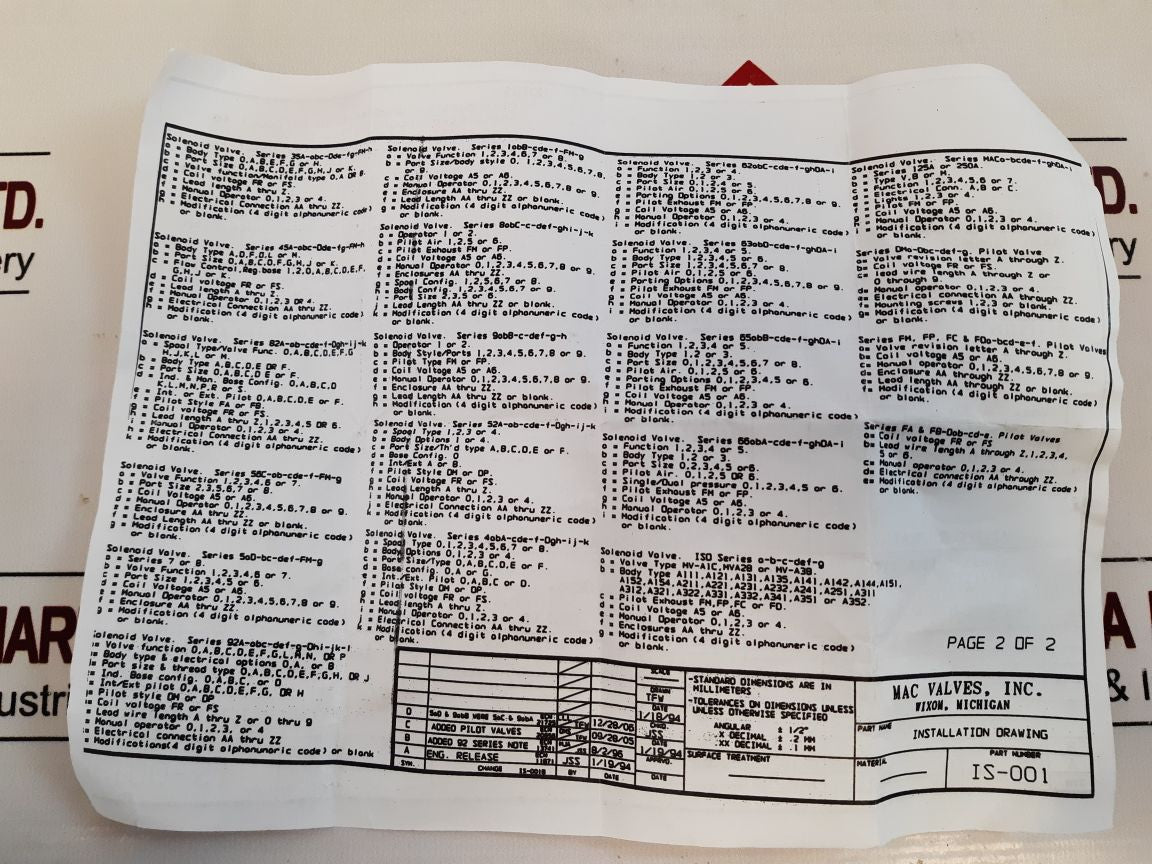 Solenoid Valve. Series 35A-abc-Dde-fg-FM-h
a = Body Type 0,A,B,E,F,G or H.
b = Port Size 0,A,B,C,D,E,F,G,H,J or K.
c = Valve function/Manifold type 0,A OR B.
d = Coil voltage FR or FS.
e = Lead length A thru Z.
f = Manual Operator 0,1,2,3 or 4.
g = Electrical Connection AA thru ZZ.
h = Modification (4 digit alphanumeric code)
or blank.
Solenoid Valve. Series 45A-abc-Dde-fg-FM-h
a = Body Type A,D,F,G,L or M.
b = Port Size 0,A,B,C,D,F,G,H,J or K.
c = Flow Control,Reg.base 1,2,0,A,B,C,D,E,F,
G,H,J or K.
d = Coil voltage FR or FS.
e = Lead length A thru Z.
f = Manual Operator 0,1,2,3 OR 4.
g = Electrical Connection AA thru ZZ.
h = Modification (4 digit alphanumeric code)
or blank.
Solenoid Valve. Series 82A-ab-cde-f-Dgh-ij-k
a = Spool Type/Valve Func. 0,A,B,C,D,E,F,G
H,J,K,L or M.
b = Body Type A,B,C,D,E OR F.
c = Port Size 0,A,B,C,D,E or F.
d = Ind. & Man. Base Config. 0,A,B,C,D
K,L,M,N,P,R or S.
e = Int. or Ext. Pilot 0,A,B,C,D,E or F.
f = Pilot Style FA or FB.
g = Coil voltage FR or FS.
h = Lead length A thru Z,1,2,3,4,5 OR 6.
i = Manual Operator 0,1,2,3 or 4.
j = Electrical Connection AA thru ZZ.
k = Modification (4 digit alphanumeric code)
or blank.
Solenoid Valve. Series 56C-ab-cde-f-FM-g
a = Valve Function 1,2,3,4,6 or 7.
b = Port Size 2,3,5,6,7 or 8.
c = Coil Voltage A5 or A6.
d = Manual Operator 0,1,2,3,4,5,6,7,8 or 9.
e = Enclosure AA thru ZZ.
f = Lead Length AA thru ZZ or blank.
g = Modification (4 digit alphanumeric code)
or blank.
Solenoid Valve. Series 5aD-bc-def-FM-g
a = Series 7 or 8.
b = Valve Function 1,2,3,4,6 or 7.
c = Port Size 1,2,3,4,5 or 6.
d = Coil Voltage A5 or A6.
e = Manual Operator 0,1,2,3,4,5,6,7,8 or 9.
f = Enclosure AA thru ZZ.
g = Modification (4 digit alphanumeric code)
or blank.
Solenoid Valve. Series 92A-abc-def-g-Dhi-jk-l
a= Valve function 0,A,B,C,D,E,F,G,L,M,N, OR P
b= Body type & electrical options 0,A, or B
c= Port size & thread type 0,A,B,C,D,E,F,G,H, OR J
d= Ind. Base config. 0,A,B,C, or D
e= Int/Ext pilot 0,A,B,C,D,E,F,G, OR H
f= Pilot style DM or DP
Coil voltage FR or FS
Lead wire length A thru Z or 0 thru 9
Manual operator 0,1,2,3, or 4
Electrical connection AA thru ZZ
Modifications(4 digit alphanumeric code) or blank
Solenoid Valve. Series 1abB-cde-f-FM-g
a = Valve Function 1,2,3,4,6,7 or 8.
b = Port Size/body style 0, 1,2,3,4,5,6,7,8,
or 9.
c = Coil Voltage A5 or A6.
d = Manual Operator 0,1,2,3,4,5,6,7,8 or 9.
e = Enclosure AA thru ZZ.
f = Lead Length AA thru ZZ or blank.
g = Modification (4 digit alphanumeric code)
or blank.
Solenoid Valve. Series 8abC-c-def-ghi-j-k
a = Operator 1 or 2.
b = Pilot Air 1,2,5 or 6.
c = Pilot Exhaust FM or FP.
d = Coil Voltage A5 or A6.
e = Manual Operator 0,1,2,3,4,5,6,7,8 or 9.
f = Enclosures AA thru ZZ.
g = Spool Config. 1,2,5,6,7 or 8.
h = Body Config. 1,2,3,4,5,6,7 or 9.
i - Port Size 2,3,5 or 6.
j = Lead Length AA thru ZZ or blank.
k = Modification (4 digit alphanumeric code)
or blank.
Solenoid Valve. Series 9abB-c-def-g-h
a = Operator 1 or 2.
b = Body Style/Ports 1,2,3,4,5,6,7,8 or 9.
c = Pilot Type FM or FP.
d = Coil Voltage A5 or A6.
e = Manual Operator 0,1,2,3,4,5,6,7,8 or 9.
f = Enclosure AA thru ZZ.
g = Lead Length AA thru ZZ or blank.
h = Modification (4 digit alphanumeric code)
or blank.
Solenoid Valve. Series 52A-ab-cde-f-Dgh-ij-k
a = Spool Type 1,2,3 or 4.
b = Body Options 1 or 4.
c = Port Size/Th'd type A,B,C,D,E or F.
d = Base Config. 0
e = Int/Ext A or B.
f = Pilot Style DM or DP.
g = Coil Voltage FR or FS.
h = Lead length A thru Z.
i = Manual Operator 0,1,2,3 or 4.
j = Electrical Connection AA thru ZZ.
k = Modification (4 digit alphanumeric code)
or blank.
Solenoid Valve. Series 4abA-cde-f-Dgh-ij-k
a = Spool Type 0,1,2,3,4,5,6,7 or 8.
b = Body Options 0,1,2,3 or 4.
c = Port Size/Type 0,A,B,C,D,E or F.
d = Base config. 0,A or G.
e = Int./Ext. Pilot 0,A,B,C or D.
f = Pilot Style DM or DP.
g = Coil voltage FR or FS.
h = Lead length A thru Z.
i = Manual Operator 0,1,2,3 or 4.
j = Electrical Connection AA thru ZZ.
k = Modification (4 digit alphanumeric code)
or blank.
Solenoid Valve. Series 62abC-cde-f-ghDA-i
a = Function 1,2,3 or 4.
b = Body Type 1,2 or 3.
c = Port Size 0,1,2,4 or 5.
d = Pilot Air 0,1,2,5 or 6.
e = Porting Options 0,1,2,3,4,5,6,7,8 or 9.
f = Pilot Exhaust FM or FP.
g = Coil Voltage A5 or A6.
h = Manual Operator 0,1,2,3 or 4.
i = Modification (4 digit alphanumeric code)
or blank.
Solenoid Valve. Series 63abD-cde-f-ghDA-i
a = Function 1,2,3,4 or 5.
b = Body Type 1,2,3,4,5 or 6.
c = Port Size 1,2,3,4,5,6,7 or 8.
d = Pilot Air 0,1,2,5 or 6.
e = Porting Options 0,1,2,3,4,5,6,7,8 or 9.
f = Pilot Exhaust FM or FP.
g = Coil Voltage A5 or A6.
h = Manual Operator 0,1,2,3 or 4.
i = Modification (4 digit alphanumeric code)
or blank.
Solenoid Valve. Series 65abB-cde-f-ghDA-i
a = Function 1,2,3,4 or 5.
b = Body Type 1,2 or 3.
c = Port Size 0,1,2,3,4,5,6,7 or 8.
d = Pilot Air. 0,1,2,5 or 6.
e = Porting Options 0,1,2,3,4,5 or 6.
f = Pilot Exhaust FM or FP.
g = Coil Voltage A5 or A6.
h = Manual Operator 0,1,2,3 or 4.
i = Modification (4 digit alphanumeric code)
or blank.
Solenoid Valve. Series 66abA-cde-f-ghDA-i
a = Function 1,2,3,4 or 5.
b = Body Type 1,2 or 3.
c = Port Size 0,2,3,4,5 or6.
d = Pilot Air. 0,1,2,5 OR 6.
e = Single/Dual pressure 0,1,2,3,4,5 or 6.
f = Pilot Exhaust FM or FP.
g = Coil Voltage A5 or A6.
h = Manual Operator 0,1,2,3 or 4.
i = Modification (4 digit alphanumeric code)
or blank.
Solenoid Valve. ISO Series a-b-c-def-g
a = Valve Type MV-A1C,MVA2B or MV-A3B
b = Valve Type A111,A121,A131,A135,A141,A142,A144,A151,
A152,A154,A211,A221,A231,A232,A241,A251,A311
A312,A321,A322,A331,A332,A341,A351 or A352.
c = Pilot Exhaust FM,FP,FC or FD.
d = Coil Voltage A5 or A6.
e = Manual Operator 0,1,2,3 or 4.
f = Enclosures AA thru ZZ.
g = Modification (4 digit alphanumeric code)
or blank.
Solenoid Valve. Series MACa-bcde-f-ghDA-i
a = Series 125A or 250A.
b = Type V,B or M.
c = Function 1,2,3,4,5,6 or 7.
d = Electrical Conn. A,B or C.
e = Lights 1,2,3 or 4.
f = Pilot Exhaust FM or FP.
g = Coil Voltage A5 or A6.
h = Manual Operator 0,1,2,3 or 4.
i = Modification (4 digit alphanumeric code)
or blank.
Series DMa-Dbc-def-g. Pilot Valve
a= Valve revision letter A through Z.
b= Coil voltage FR or FS.
c= Lead wire length A through Z or
0 through 9.
d= Manual operator 0,1,2,3 or 4.
e= Electrical connection AA through ZZ.
f= Mounting screws 1,2,3 or blank.
g= Modification (4 digit alphanumeric code)
or blank.
Series FM, FP, FC & FDa-bcd-e-f. Pilot Valves
a= Valve revision letter A through Z.
b= Coil voltage A5 or A6.
c= Manual Operator 0,1,2,3 or 4.
d= Enclosure AA through ZZ.
e= Lead length AA through ZZ or blank.
f= Modification (4 digit alphanumeric code)
or blank.
Series FA & FB-Dab-cd-e. Pilot Valves
a= Coil voltage FR or FS
b= Lead wire length A through Z,1,2,3,4,
5 or 6.
c= Manual operator 0,1,2,3 or 4.
d= Electrical connection AA through ZZ.
e= Modification (4 digit alphanumeric code)
or blank.
PAGE 2 OF 2
D 5aD & 9abB WERE 5aC & 9abA 12/28/06
C ADDED PILOT VALVES TFW 09/28/05
B ADDED 92 SERIES NOTE 8/2/96
A ENG. RELEASE JSS 1/19/94
SYM. CHANGE IS-001B BY DATE
SCALE
DRAWN
TFW
DATE
1/18/94
CHKD.
JSS
DATE
1/19/94
APPRVD.
DATE
-STANDARD DIMENSIONS ARE IN
MILLIMETERS
-TOLERANCES ON DIMENSIONS UNLESS
UNLESS OTHERWISE SPECIFIED
ANGULAR ± 1/2°
.X DECIMAL ± .2 MM
.XX DECIMAL ± .1 MM
SURFACE TREATMENT
MAC VALVES, INC.
WIXOM, MICHIGAN
PART NAME
INSTALLATION DRAWING
MATERIAL
PART NUMBER
IS-001
TD.
ery
MAR
ustri
D.
ry
A
& I